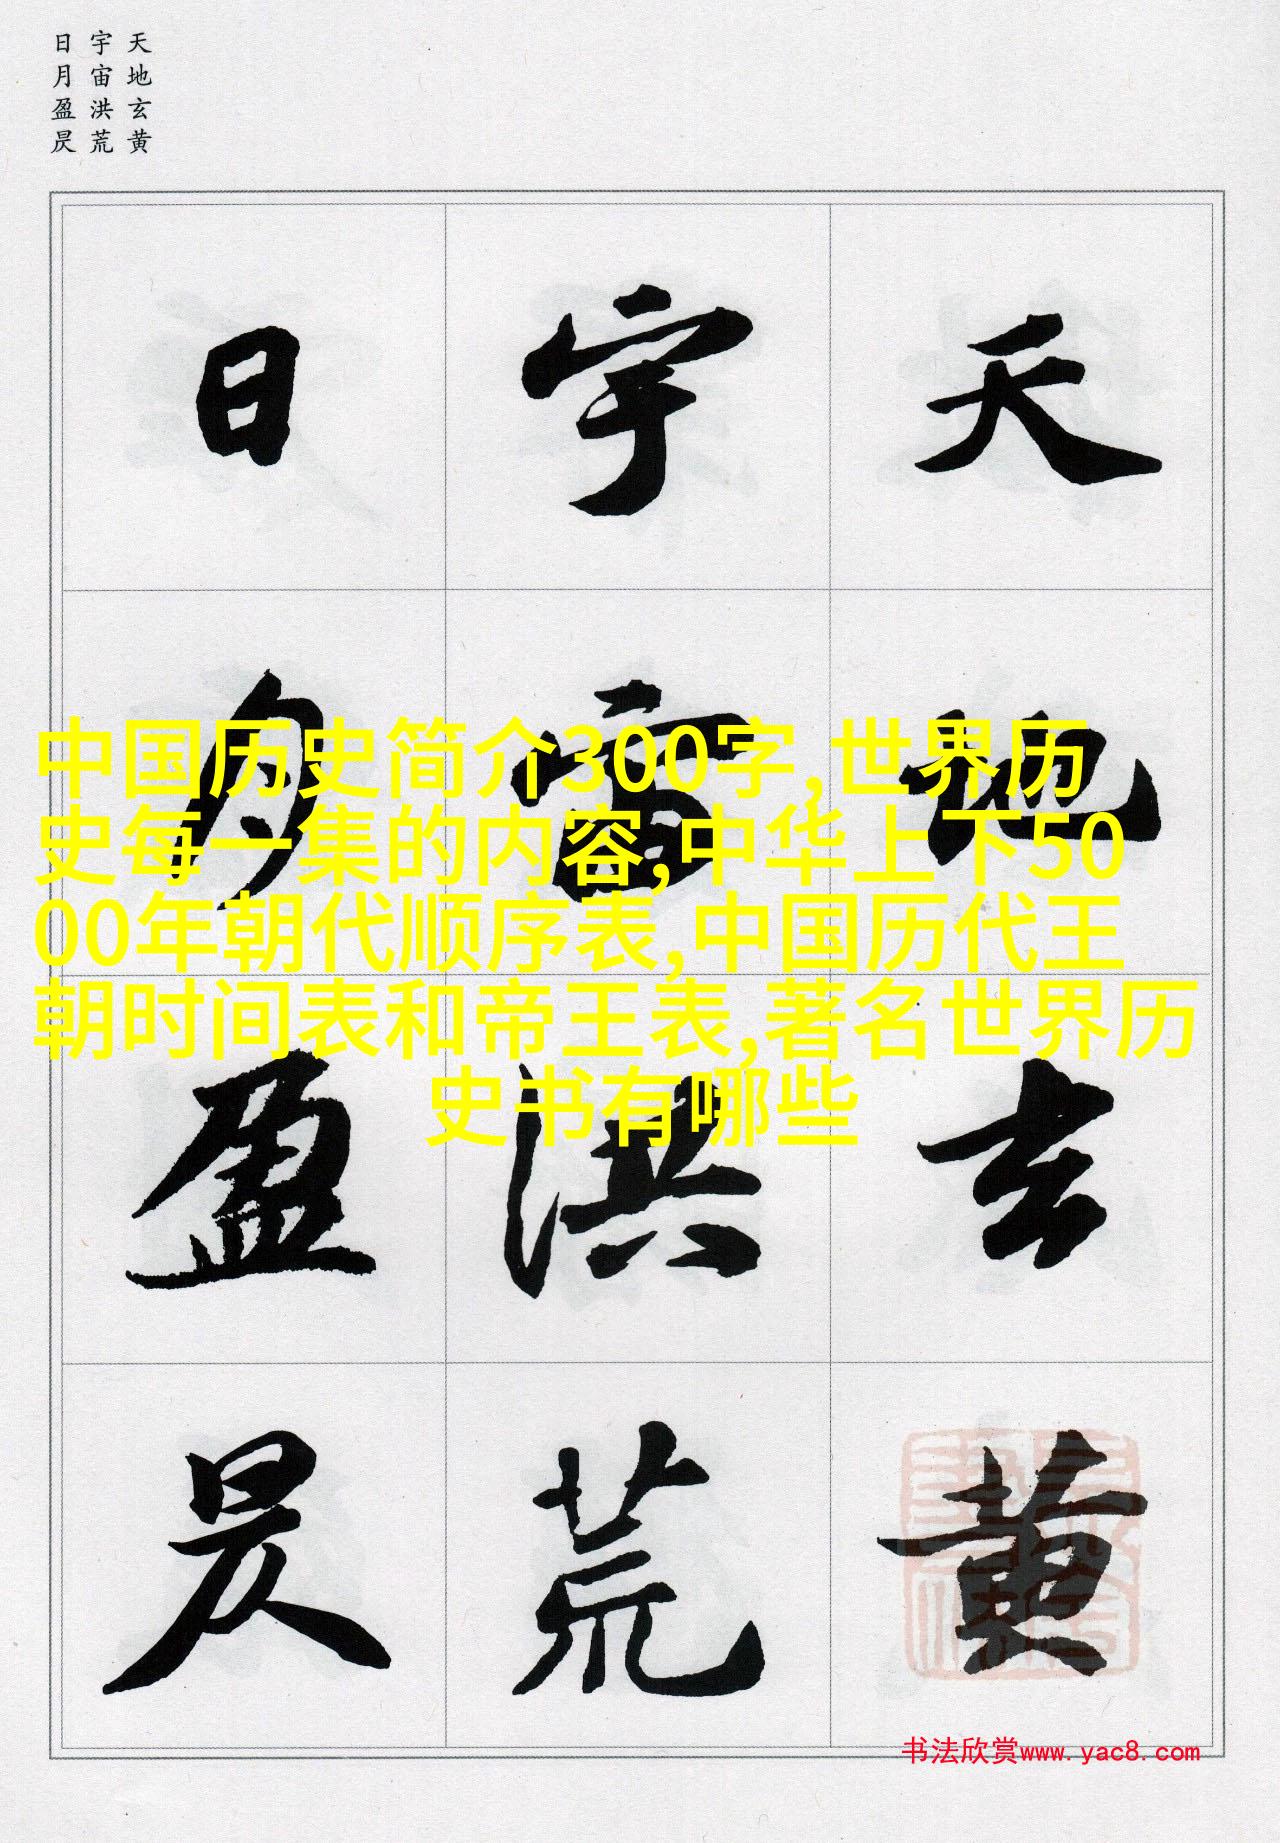 天地玄黄
宇宙洪荒
日月盈昃
天地玄黄
宇宙洪荒
日月盈昃
中国历史简介300字,世界历
史每一集的内容,中华上下50
00年朝代顺序表,中国历代王
朝时间表和帝王表,著名世界历
史书有哪些
书法欣赏www.yac8.com